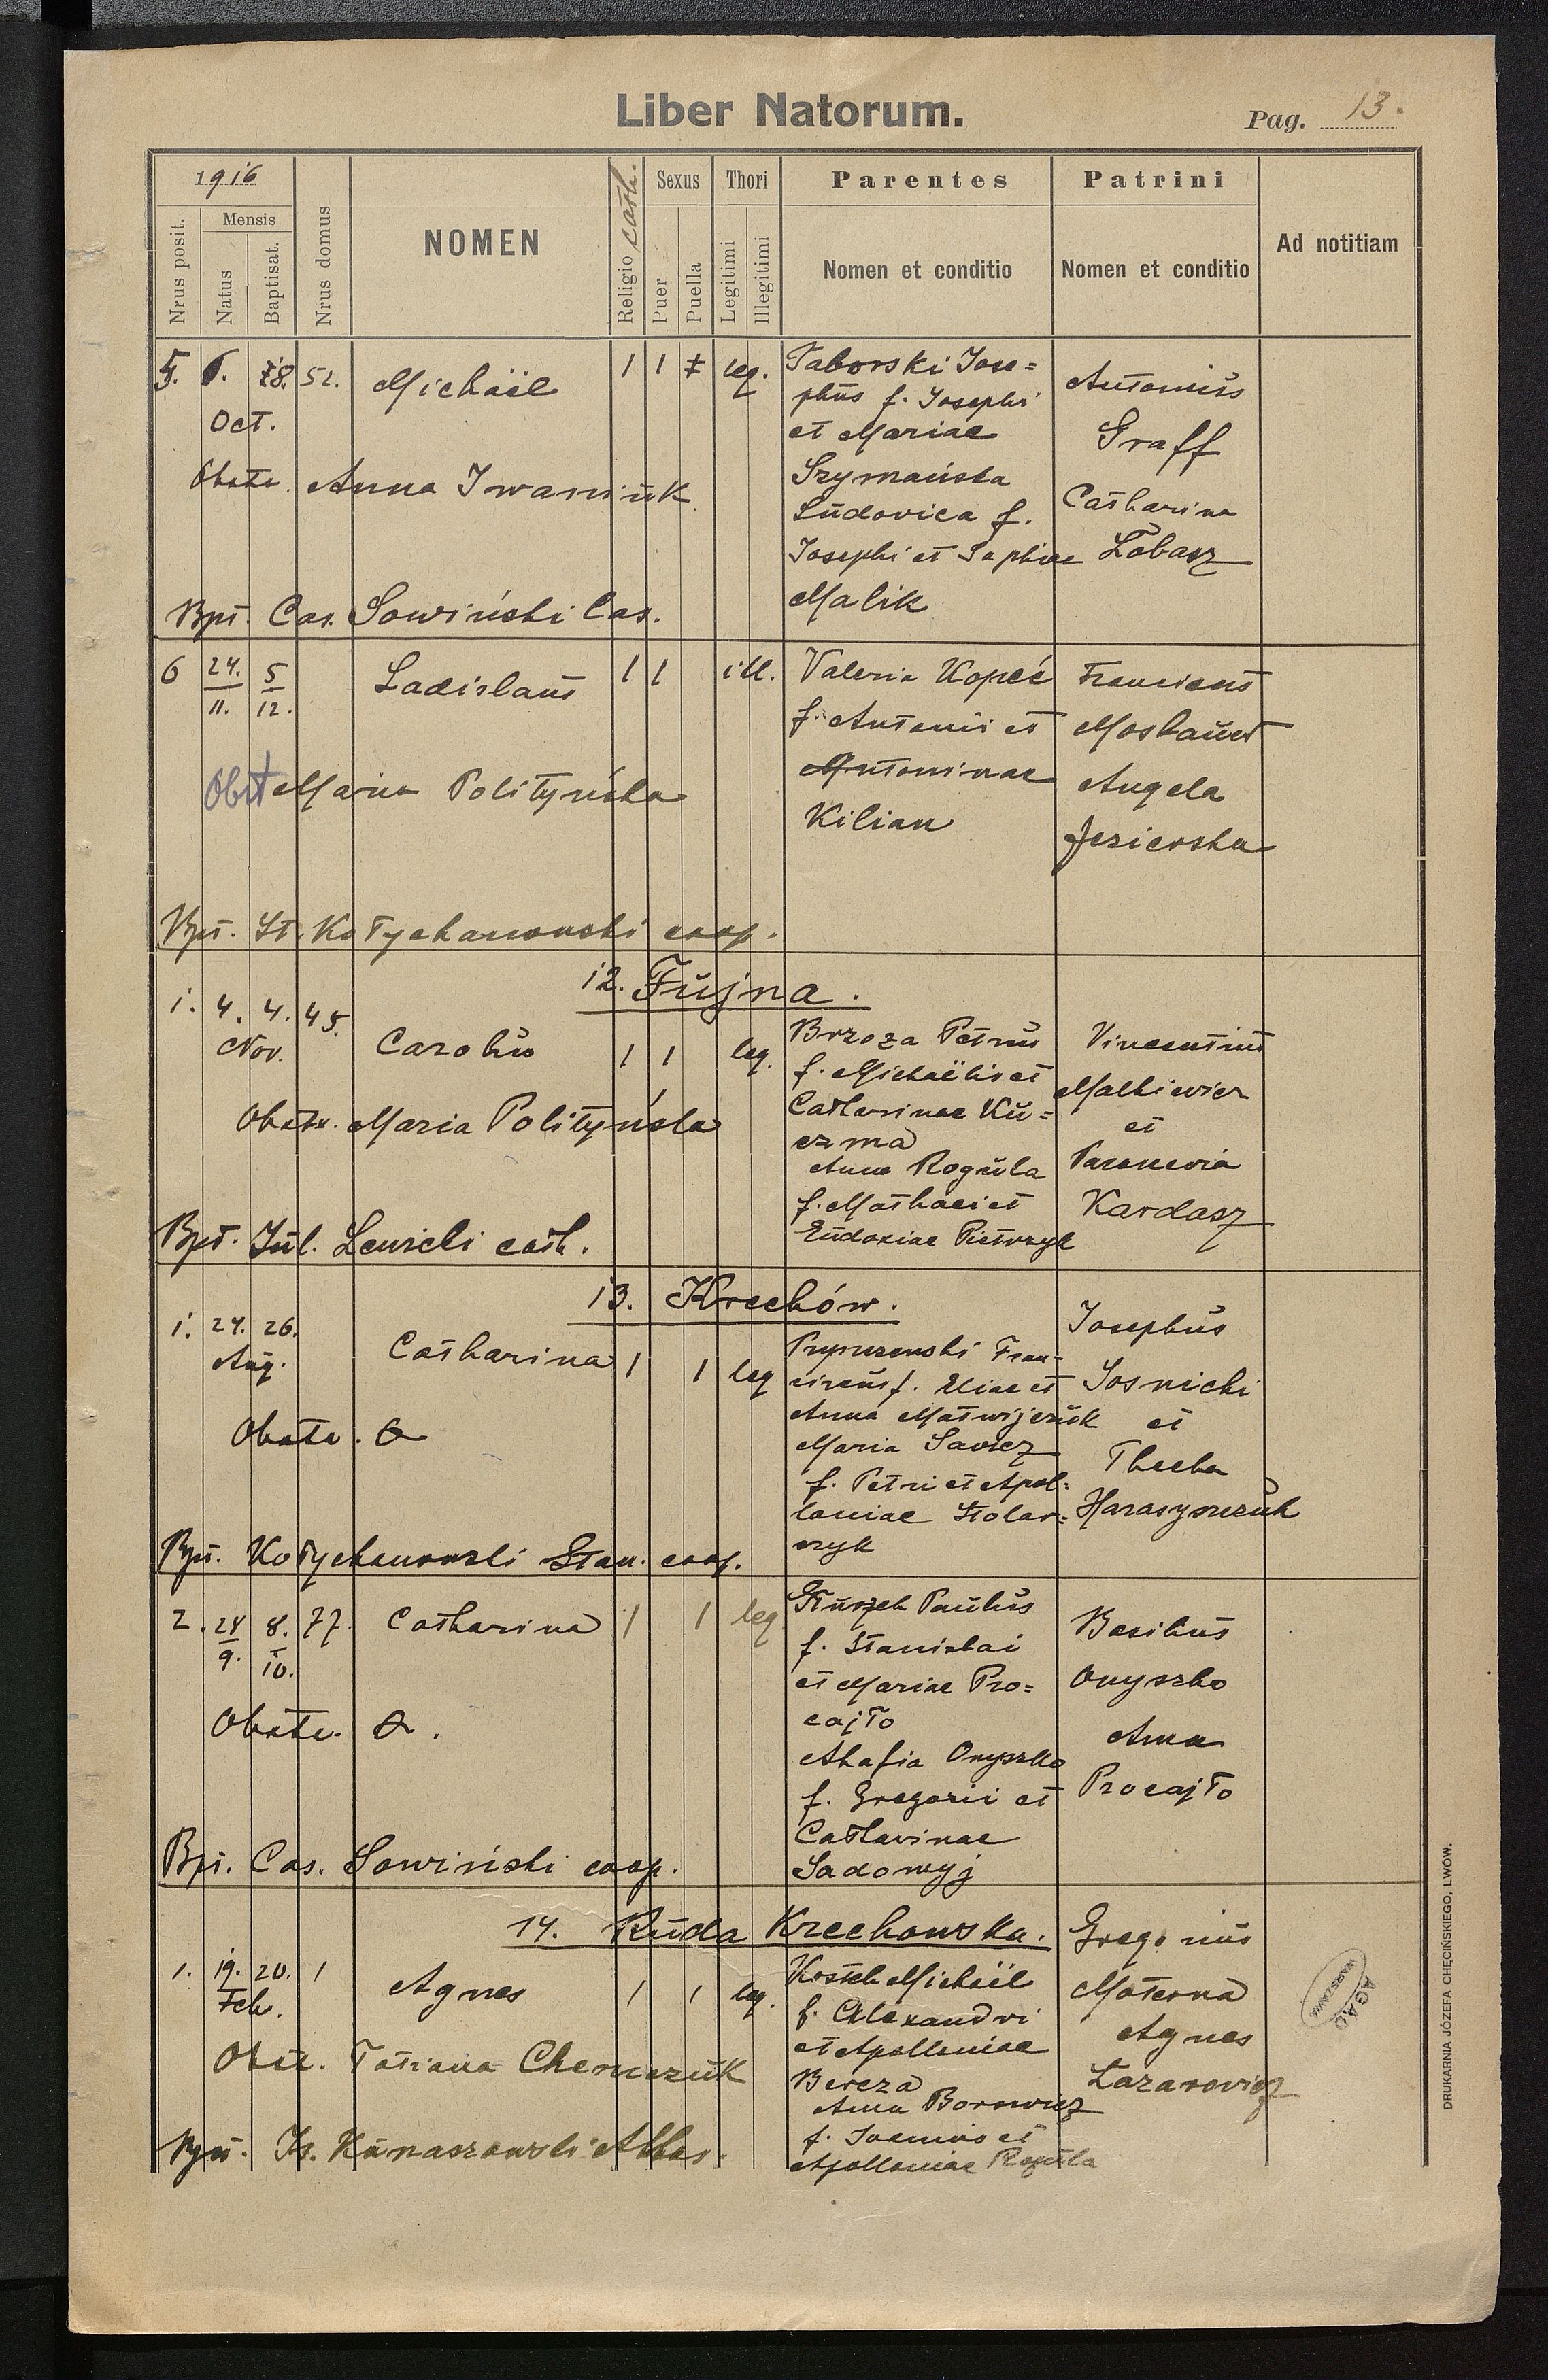 Liber Natorum.
Pag. 13.
1916
Nrus posit.
Mensis
Natus
Baptisat.
Nrus domus
NOMEN
Religio cath.
Sexus
Puer
Puella
Thori
Legitimi
Illegitimi
Parentes
Nomen et conditio
Patrini
Nomen et conditio
Ad notitiam
5. 6. 18. 52. Michaël 1 1 leg.
Oct.
Obstr. Anna Iwaniuk
Taborski Jose=
phus f. Josephi
et Mariae
Szymańska
Ludovica f.
Josephi et Sophiae
Malik
Antonius
Graff
Catharina
Łobasz
Bpt. Cas. Sowiński Cas.
6 24. 5 Ladislaus 1 1 ill.
11. 12.
Obst Maria Polityńska
Valeria Kopeć
f. Antonii et
Antoninae
Kilian
Franciscus
Moskaluk
Angela
Jezierska
Bpt. St. Kotychanowski coop.
12. Fujna.
1. 4. 4. 45.
Nov. Carolus 1 1 leg.
Obstr. Maria Polityńska
Brzoza Petrus
f. Michaëlis et
Catharinae Ku=
czma
Anna Rogula
f. Mathaei et
Eudoxiae Pietrzyk
Vincentius
Malkiewicz
et
Parascevia
Kardasz
Bpt. Jul. Lewicki cath.
13. Krechów.
1. 24. 26.
Aug. Catharina 1 1 leg
Obstr.
Fran=
ciscus f. Eliae et
Anna Matwijczuk
Maria Sawicz
f. Petri et Apol=
loniae Stolar=
czyk
Josephus
Sosnicki
et
Thecla
Harasymczuk
Bpt. Kotychanowski Stan. coop.
2. 24 8. 77. Catharina 1 1 leg.
9. 10.
Obstr.
Paulus
f. Stanislai
et Mariae Pro=
cajło
Ahafia Onyszko
f. Gregorii et
Catharinae
Sadowyj
Basilius
Onyszko
Anna
Procajło
Bpt. Cas. Sowiński coop.
14. Ruda Krechowska.
1. 19. 20. 1 Agnes 1 1 leg.
Feb.
Obst. Tatiana
Michaël
f. Alexandri
et Apolloniae
Bereza
Anna Borowicz
f. Joannis et
Apolloniae Rogula
Gregorius
Materna
Agnes
Łazarowicz
Bpt. Is. Kunaszowski Abbas.
AGAD
WARSZAWA
DRUKARNIA JÓZEFA CHĘCIŃSKIEGO, LWÓW.